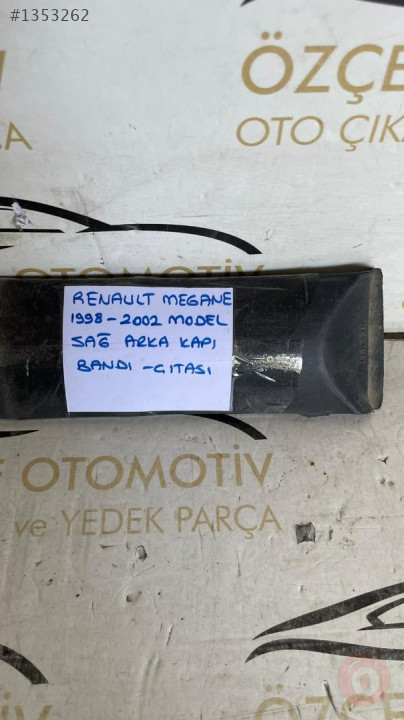 #1353262
ÖZÇE
OTO ÇIKA
KA
RENAULT MEGANE
1998-2002 MODEL
SAĞ ARKA KAPI
BANDI -GITASI
OTOMOTİV
ve YEDEK PARÇA
OTOMOTİV
ÖZÇE